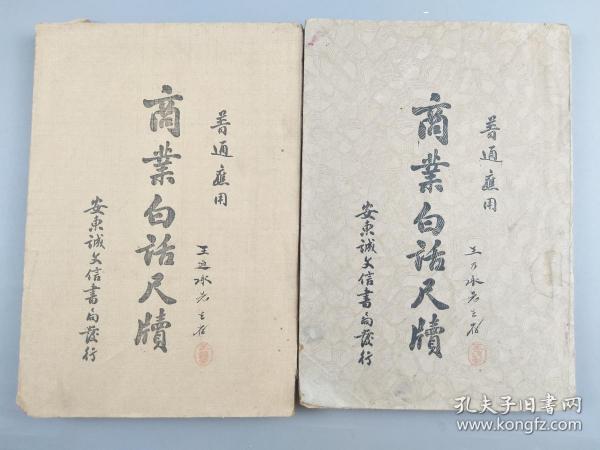 普通應用
商業白話尺牘
安東誠文信書局發行
普通應用
商業白話尺牘
安東誠文信書局發行
孔夫子旧书网
www.kongfz.com